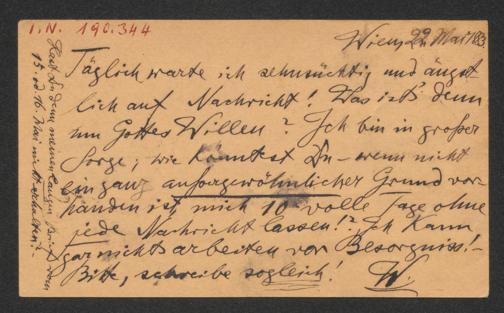 I.N. 190.344
Wien, 22. Mai 193
Täglich warte ich sehnsüchtig und ängst
lich auf Nachricht! Was ist's denn
um Gottes Willen? Ich bin in großer
Sorge; wie konntest Du – wenn nicht
ein ganz außergewöhnlicher Grund vor-
handen ist, mich 10 volle Tage ohne
jede Nachricht lassen!? Ich kann
gar nichts arbeiten vor Besorgniss! –
Bitte, schreibe sogleich! W.
Hast Du denn meinen langen Brief vom
15. od 16. Mai nicht erhalten?